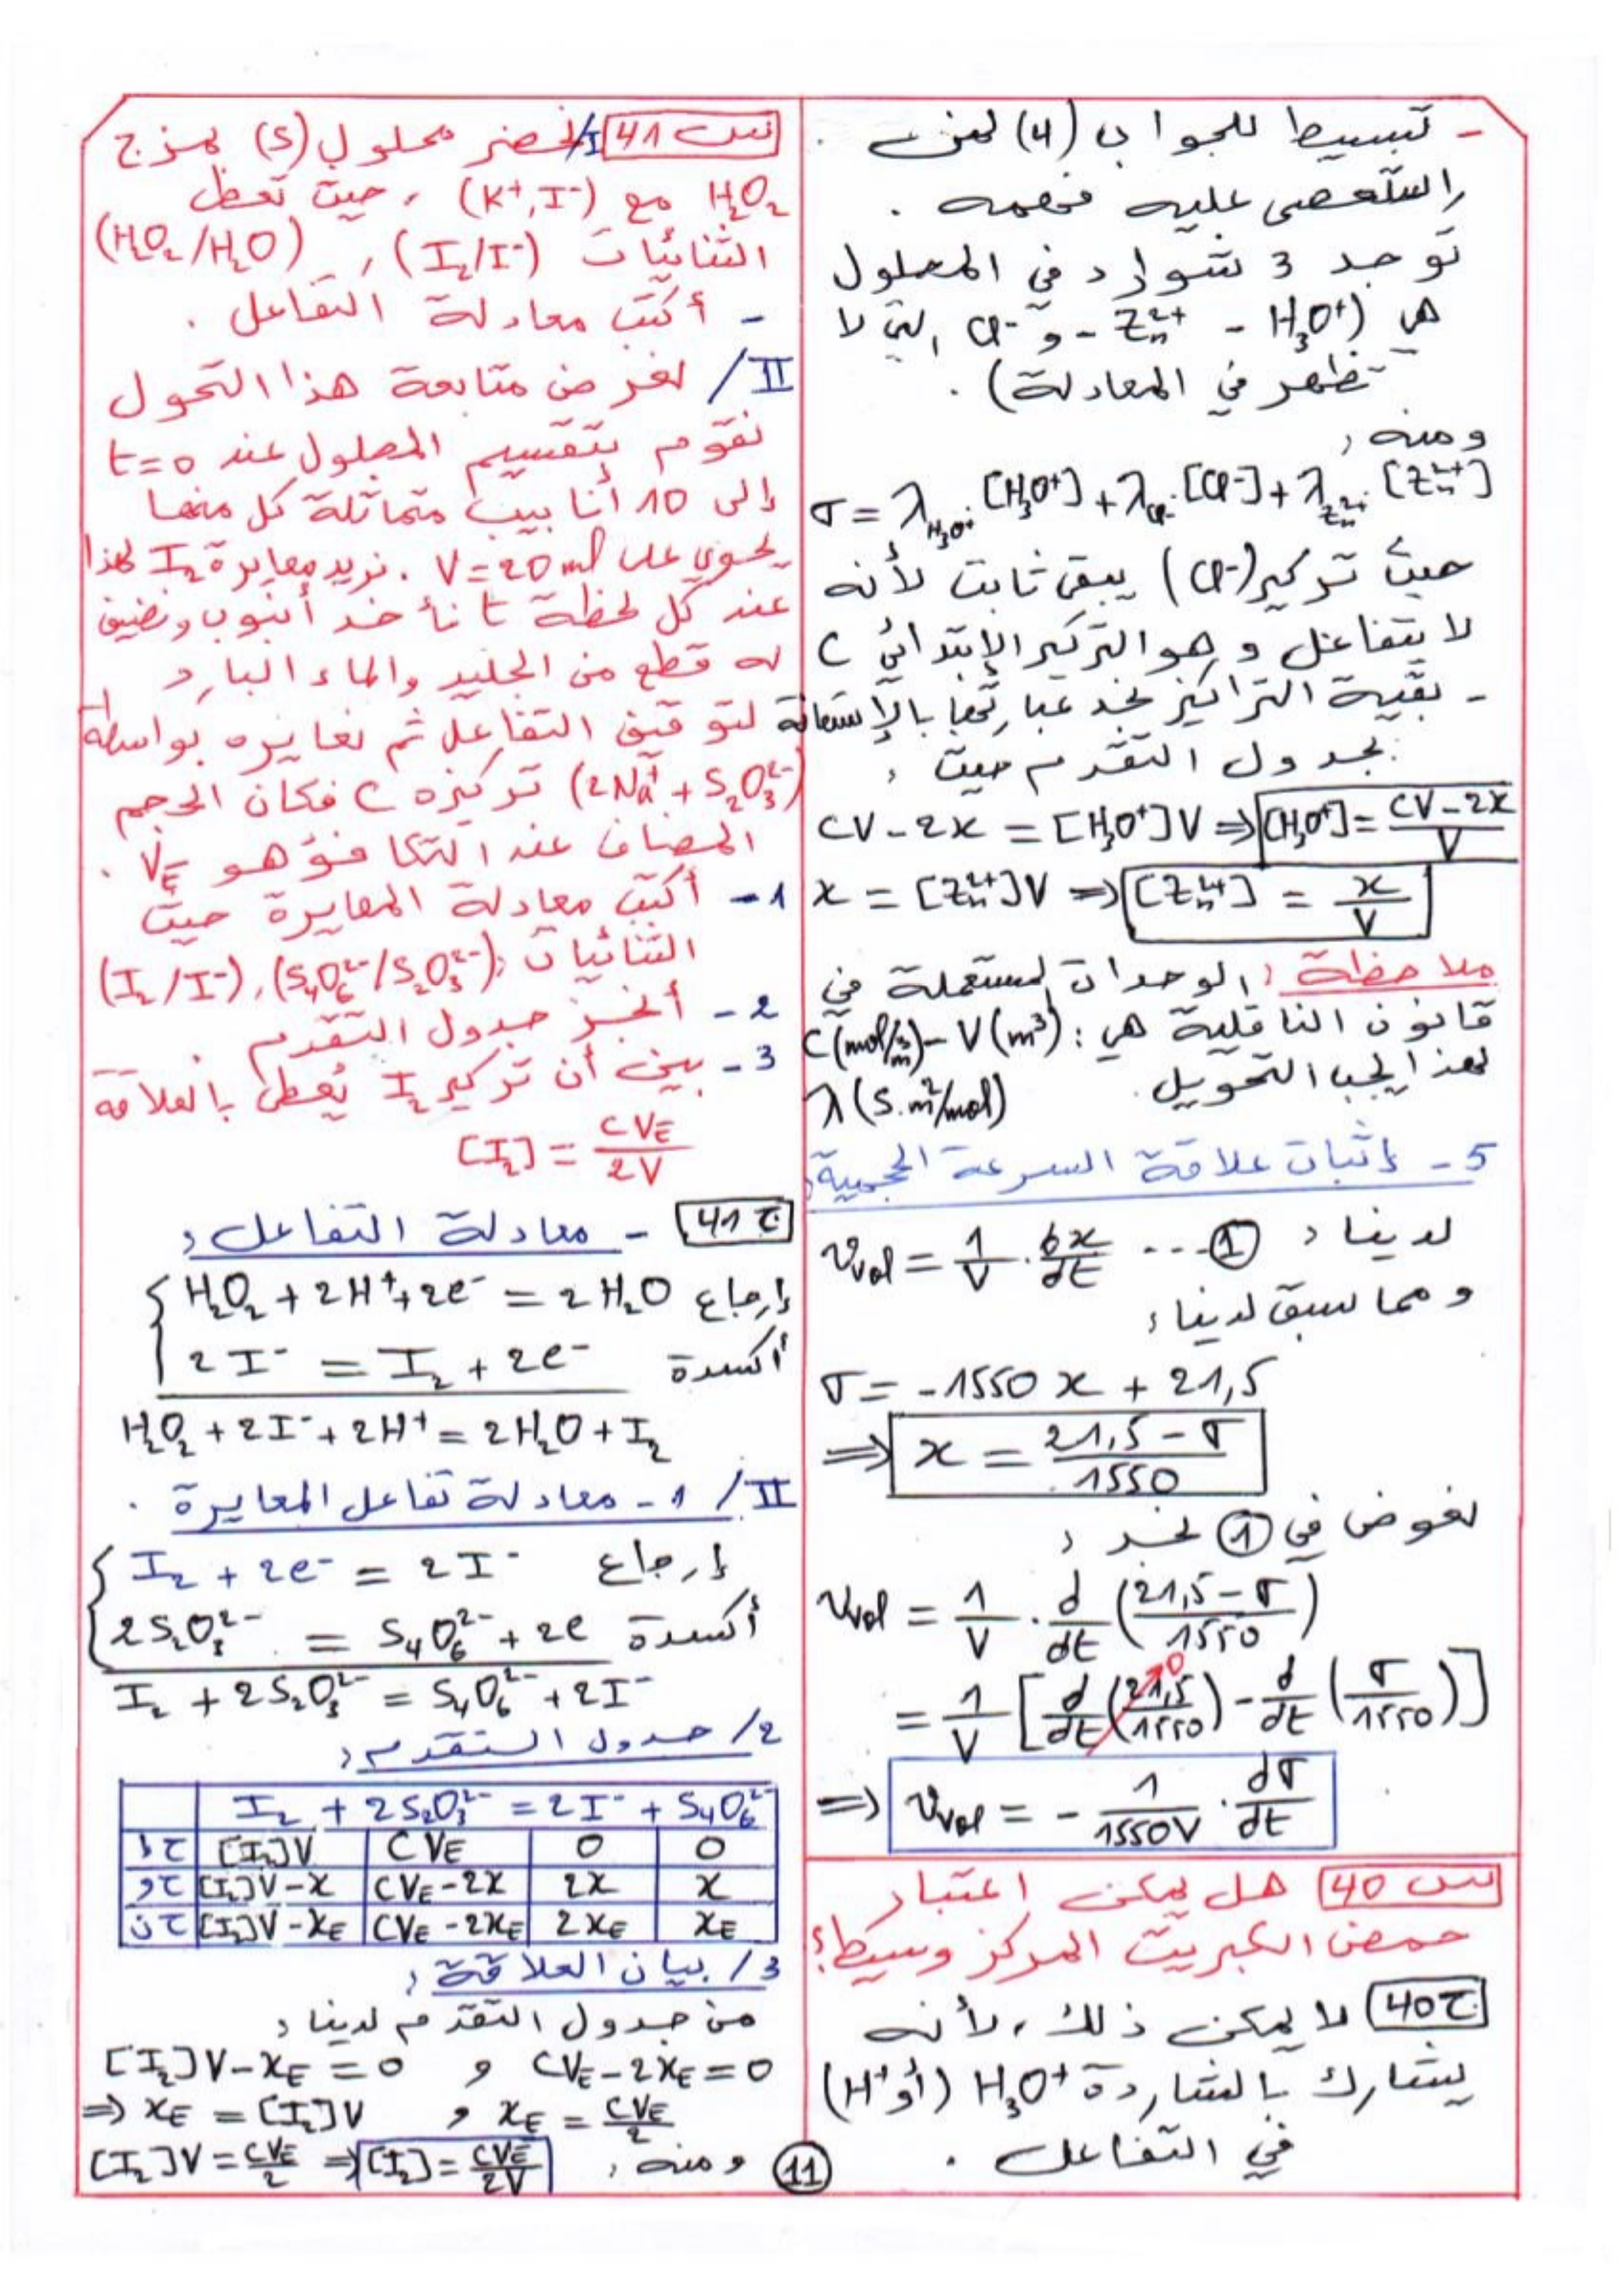 - تبسيط للجواب (4) لمن
استعصى عليه فهمه .
توجد 3 شوارد في المحلول
هي (H₃O⁺ - Zn²⁺ - و Cl⁻ التي لا
تظهر في المعادلة) .
ومنه :
σ = λH₃O⁺.[H₃O⁺] + λCl⁻.[Cl⁻] + λZn²⁺.[Zn²⁺]
حيث تركيز (Cl⁻) يبقى ثابت لأنه
لا يتفاعل و هو التركيز الإبتدائي C
- بقية التراكيز نجد عبارتها بالإستعانة
بجدول التقدم حيث :
CV - 2x = [H₃O⁺]V ⇒ [H₃O⁺] = (CV - 2x)/V
x = [Zn²⁺]V ⇒ [Zn²⁺] = x/V
ملاحظة : الوحدات المستعملة في
قانون الناقلية هي : C(mol/m³) - V(m³)
لهذا يجب التحويل. λ(S.m²/mol)
5 - إثبات علاقة السرعة الحجمية :
لدينا : Vvol = 1/V . dx/dt ... ①
ومما سبق لدينا :
σ = -1550 x + 21,5
⇒ x = (21,5 - σ)/1550
نعوض في ① نجد :
Vvol = 1/V . d/dt ((21,5 - σ)/1550)
= 1/V [d/dt (21,5/1550)→0 - d/dt (σ/1550)]
⇒ Vvol = - 1/1550V . dσ/dt
س 40 هل يمكن اعتبار
حمض الكبريت المركز وسيط؟
ج 40 لا يمكن ذلك ، لأنه
يشارك بالشاردة H₃O⁺ (أو H⁺)
في التفاعل .
س 41 I/ نحضر محلول (S) بمزج
H₂O₂ مع (K⁺, I⁻) ، حيث تعطى
الثنائيات (I₂/I⁻) ، (H₂O₂/H₂O)
- أكتب معادلة التفاعل .
II/ لغرض متابعة هذا التحول
نقوم بتقسيم المحلول عند t=0
إلى 10 أنابيب متماثلة كل منها
يحوي على V = 20 ml . نريد معايرة I₂ لهذا
عند كل لحظة t نأخد أنبوب ونضيف
له قطع من الجليد والماء البارد
لتوقيف التفاعل ثم نعايره بواسطة
(2Na⁺ + S₂O₃²⁻) تركيزه C فكان الحجم
المضاف عند التكافؤ هو VE .
1 - أكتب معادلة المعايرة حيث
الثنائيات : (S₄O₆²⁻/S₂O₃²⁻) ، (I₂/I⁻)
2 - أنجز جدول التقدم .
3 - بين أن تركيز I₂ يُعطى بالعلاقة
[I₂] = CVE/2V
ج 41 - معادلة التفاعل :
إرجاع H₂O₂ + 2H⁺ + 2e⁻ = 2H₂O
أكسدة 2I⁻ = I₂ + 2e⁻
H₂O₂ + 2I⁻ + 2H⁺ = 2H₂O + I₂
II/ 1 - معادلة تفاعل المعايرة .
إرجاع I₂ + 2e⁻ = 2I⁻
أكسدة 2S₂O₃²⁻ = S₄O₆²⁻ + 2e
I₂ + 2S₂O₃²⁻ = S₄O₆²⁻ + 2I⁻
2/ جدول التقدم :
I₂ + 2S₂O₃²⁻ = 2I⁻ + S₄O₆²⁻
ح إ [I₂]V CVE 0 0
ح و [I₂]V - x CVE - 2x 2x x
ح ن [I₂]V - xE CVE - 2xE 2xE xE
3/ بيان العلاقة :
من جدول التقدم لدينا :
[I₂]V - xE = 0 و CVE - 2xE = 0
⇒ xE = [I₂]V و xE = CVE/2
ومنه : [I₂]V = CVE/2 ⇒ [I₂] = CVE/2V
11